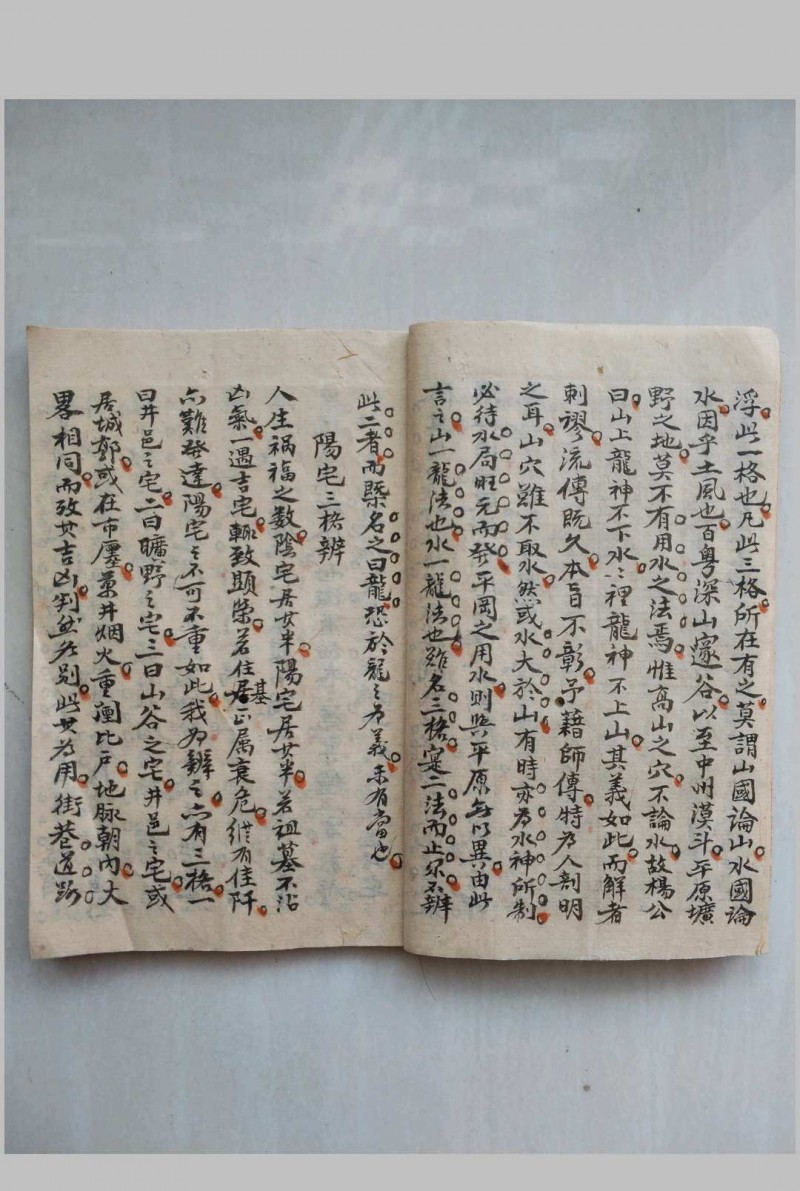 浮此一格也凡此三格所在有之莫謂山國論山水國論
水因乎土風也百粤深山邃谷以至中州漠斗平原壙
野之地莫不有用水之法焉惟高山之穴不論水故楊公
曰山上龍神不下水水裡龍神不上山其義如此而解者
刺謬流傳既久本旨不彰予藉師傳特為人剖明
之耳山穴雖不取水然或水大於山有時亦為水神所制
必待水局旺元而發平岡之用水則與平原無以異由此
言之山一龍法也水一龍法也雖名三格寔二法而止尔不辨
此二者而槩名之曰龍恐於龍之為義未有當也
陽宅三格辨
人生禍福之数陰宅居其半陽宅居其半若祖墓不沾
凶氣一遇吉宅輙致顕榮若住居基正属衰危縱有佳阡
亦難發達陽宅之不可不重如此我為辨之亦有三格一
曰井邑之宅二曰曠野之宅三曰山谷之宅井邑之宅或
居城郭或在市廛萬井烟火重闉比戶地脉朝內大
畧相同而攷其吉凶判然各别此其為用街巷道路